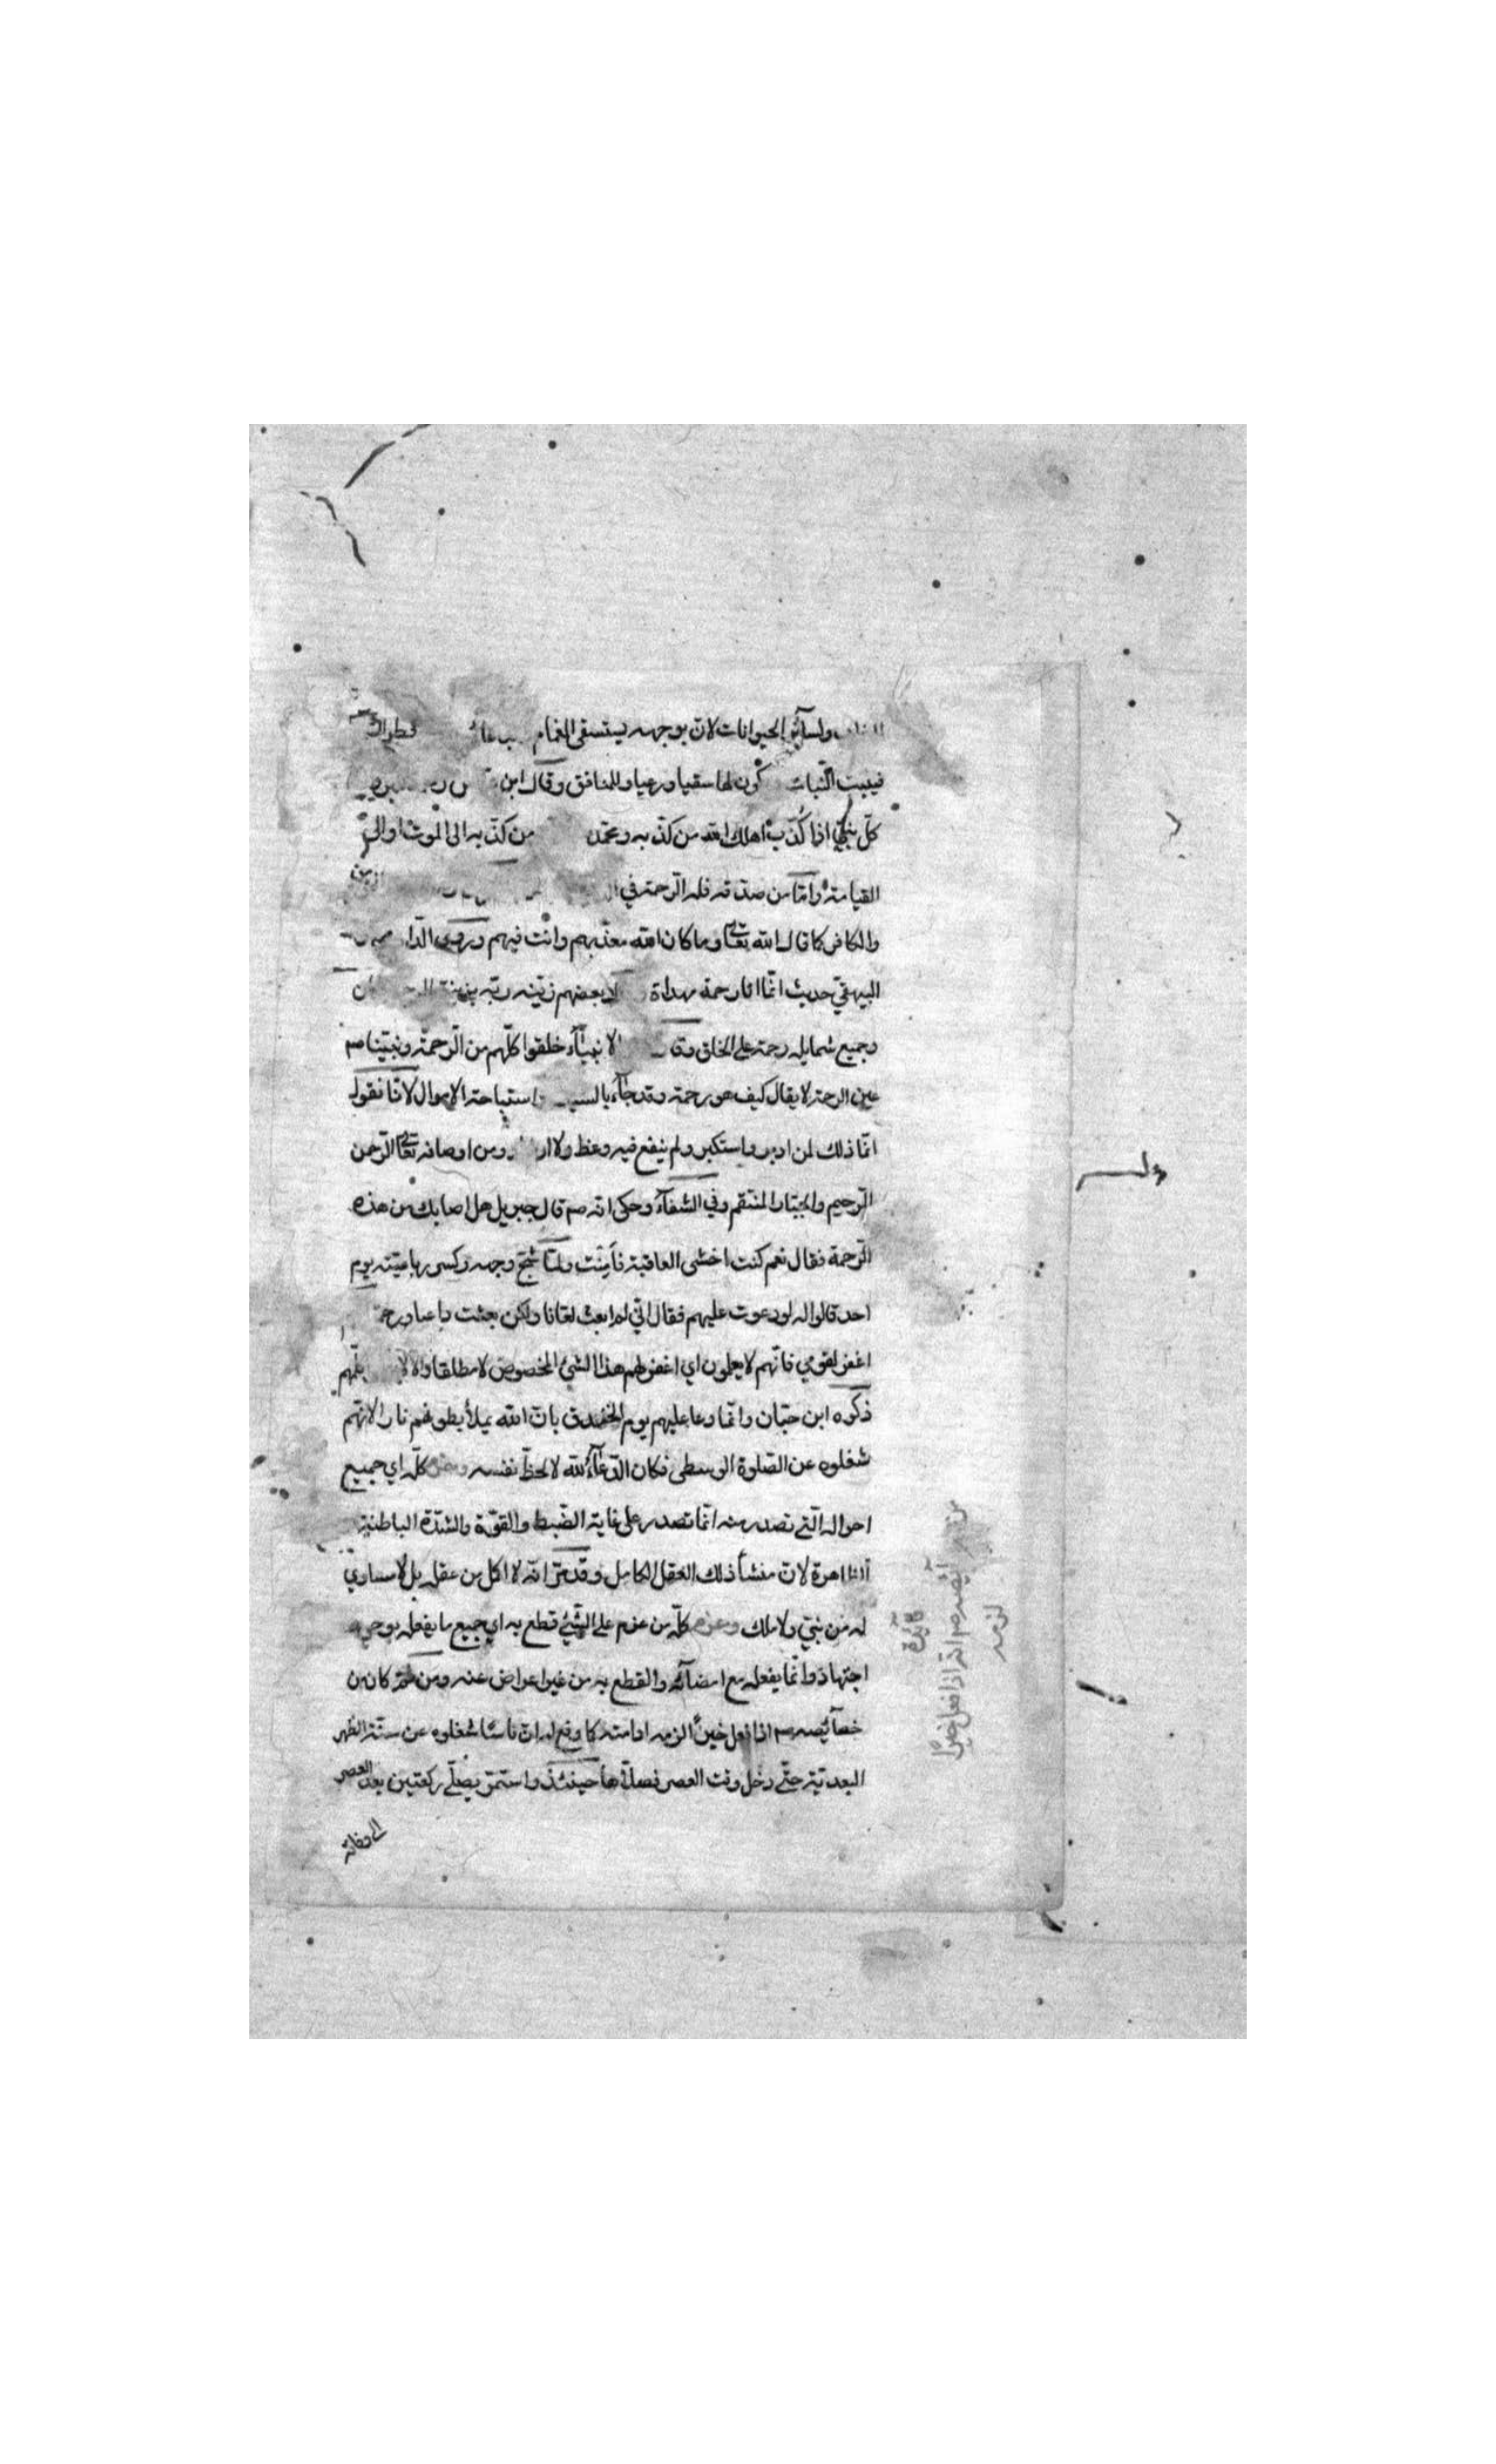 ولسآئر الحيوانات لان بوجهه يستسقى الغمام
فينبت النّبات كون لها سقيا ورعيا وللمنافق وقال ابن
كلّ نبيّ اذا كُذّب اهلك الله من كذّب به ومحمّد من كذّب به الى الموت او الى
القيامة وامّا من صدّقه فله الرّحمة في
والكافر كما قال الله تعالى وما كان الله معذّبهم وانت فيهم وروى
البيهقيّ حديث انّما انا رحمة مهداة لا بعضهم زيّنه ربّه بزينة
وجميع شمايله رحمة على الخلق الانبيآء خلقوا كلّهم من الرّحمة ونبيّنا صم
عين الرحمة لا يقال كيف هو رحمة وقد جآء بالسيف استباحة الاموال لانّا نقول
انّما ذلك لمن ادبر واستكبر ولم ينفع فيه وعظ ولا ومن اوصافه تعالى الرّحمن
الرّحيم والجبّار المنتقم وفي الشفآء وحكى انّه صم قال جبريل هل اصابك من هذه
الرّحمة فقال نعم كنت اخشى العاقبة فأمِنْت ولمّا شجّ وجهه وكسر رباعيته يوم
احد قالوا له لو دعوت عليهم فقال انّي لم ابعث لعّانا ولكن بعثت داعيا ورحمة
اغفر لقومي فانّهم لا يعلمون اي اغفر لهم هذا الشيئ المخصوص لا مطلقا والا
ذكره ابن حبّان وانّما دعا عليهم يوم الخندق بان الله يملأ بطونهم نارا لانّهم
شغلوه عن الصّلوة الوسطى فكان الدّعآء لله لا لحظّ نفسه كلّه اي جميع
احواله الّتي تصدر منه انّما تصدر على غاية الضّبط والقوّة والشّدّة الباطنيّة
الظاهرة لان منشأ ذلك العقل الكامل وقد مرّ انّه لا اكمل من عقله بل لا مساوي
له من نبيّ ولا ملك وعزم كلّه من عزم على الشّيئ قطع به اي جميع ما يفعله بوحي
اجتهاد وانّما يفعله مع امضآئه والقطع به من غير اعراض عنه ومن ثمّ كان من
خصآئصه صم اذا فعل خيرًا الزمه ادامته كما وقع له ان ناسًا شغلوه عن سنّة الظهر
البعديّة حتّى دخل وقت العصر فصلّاها حينئذ واستمرّ يصلّي ركعتين بعد العصر
الى وفاته
فآئدة
من خصآئصه صم انّه اذا فعل خيرًا
لزمه